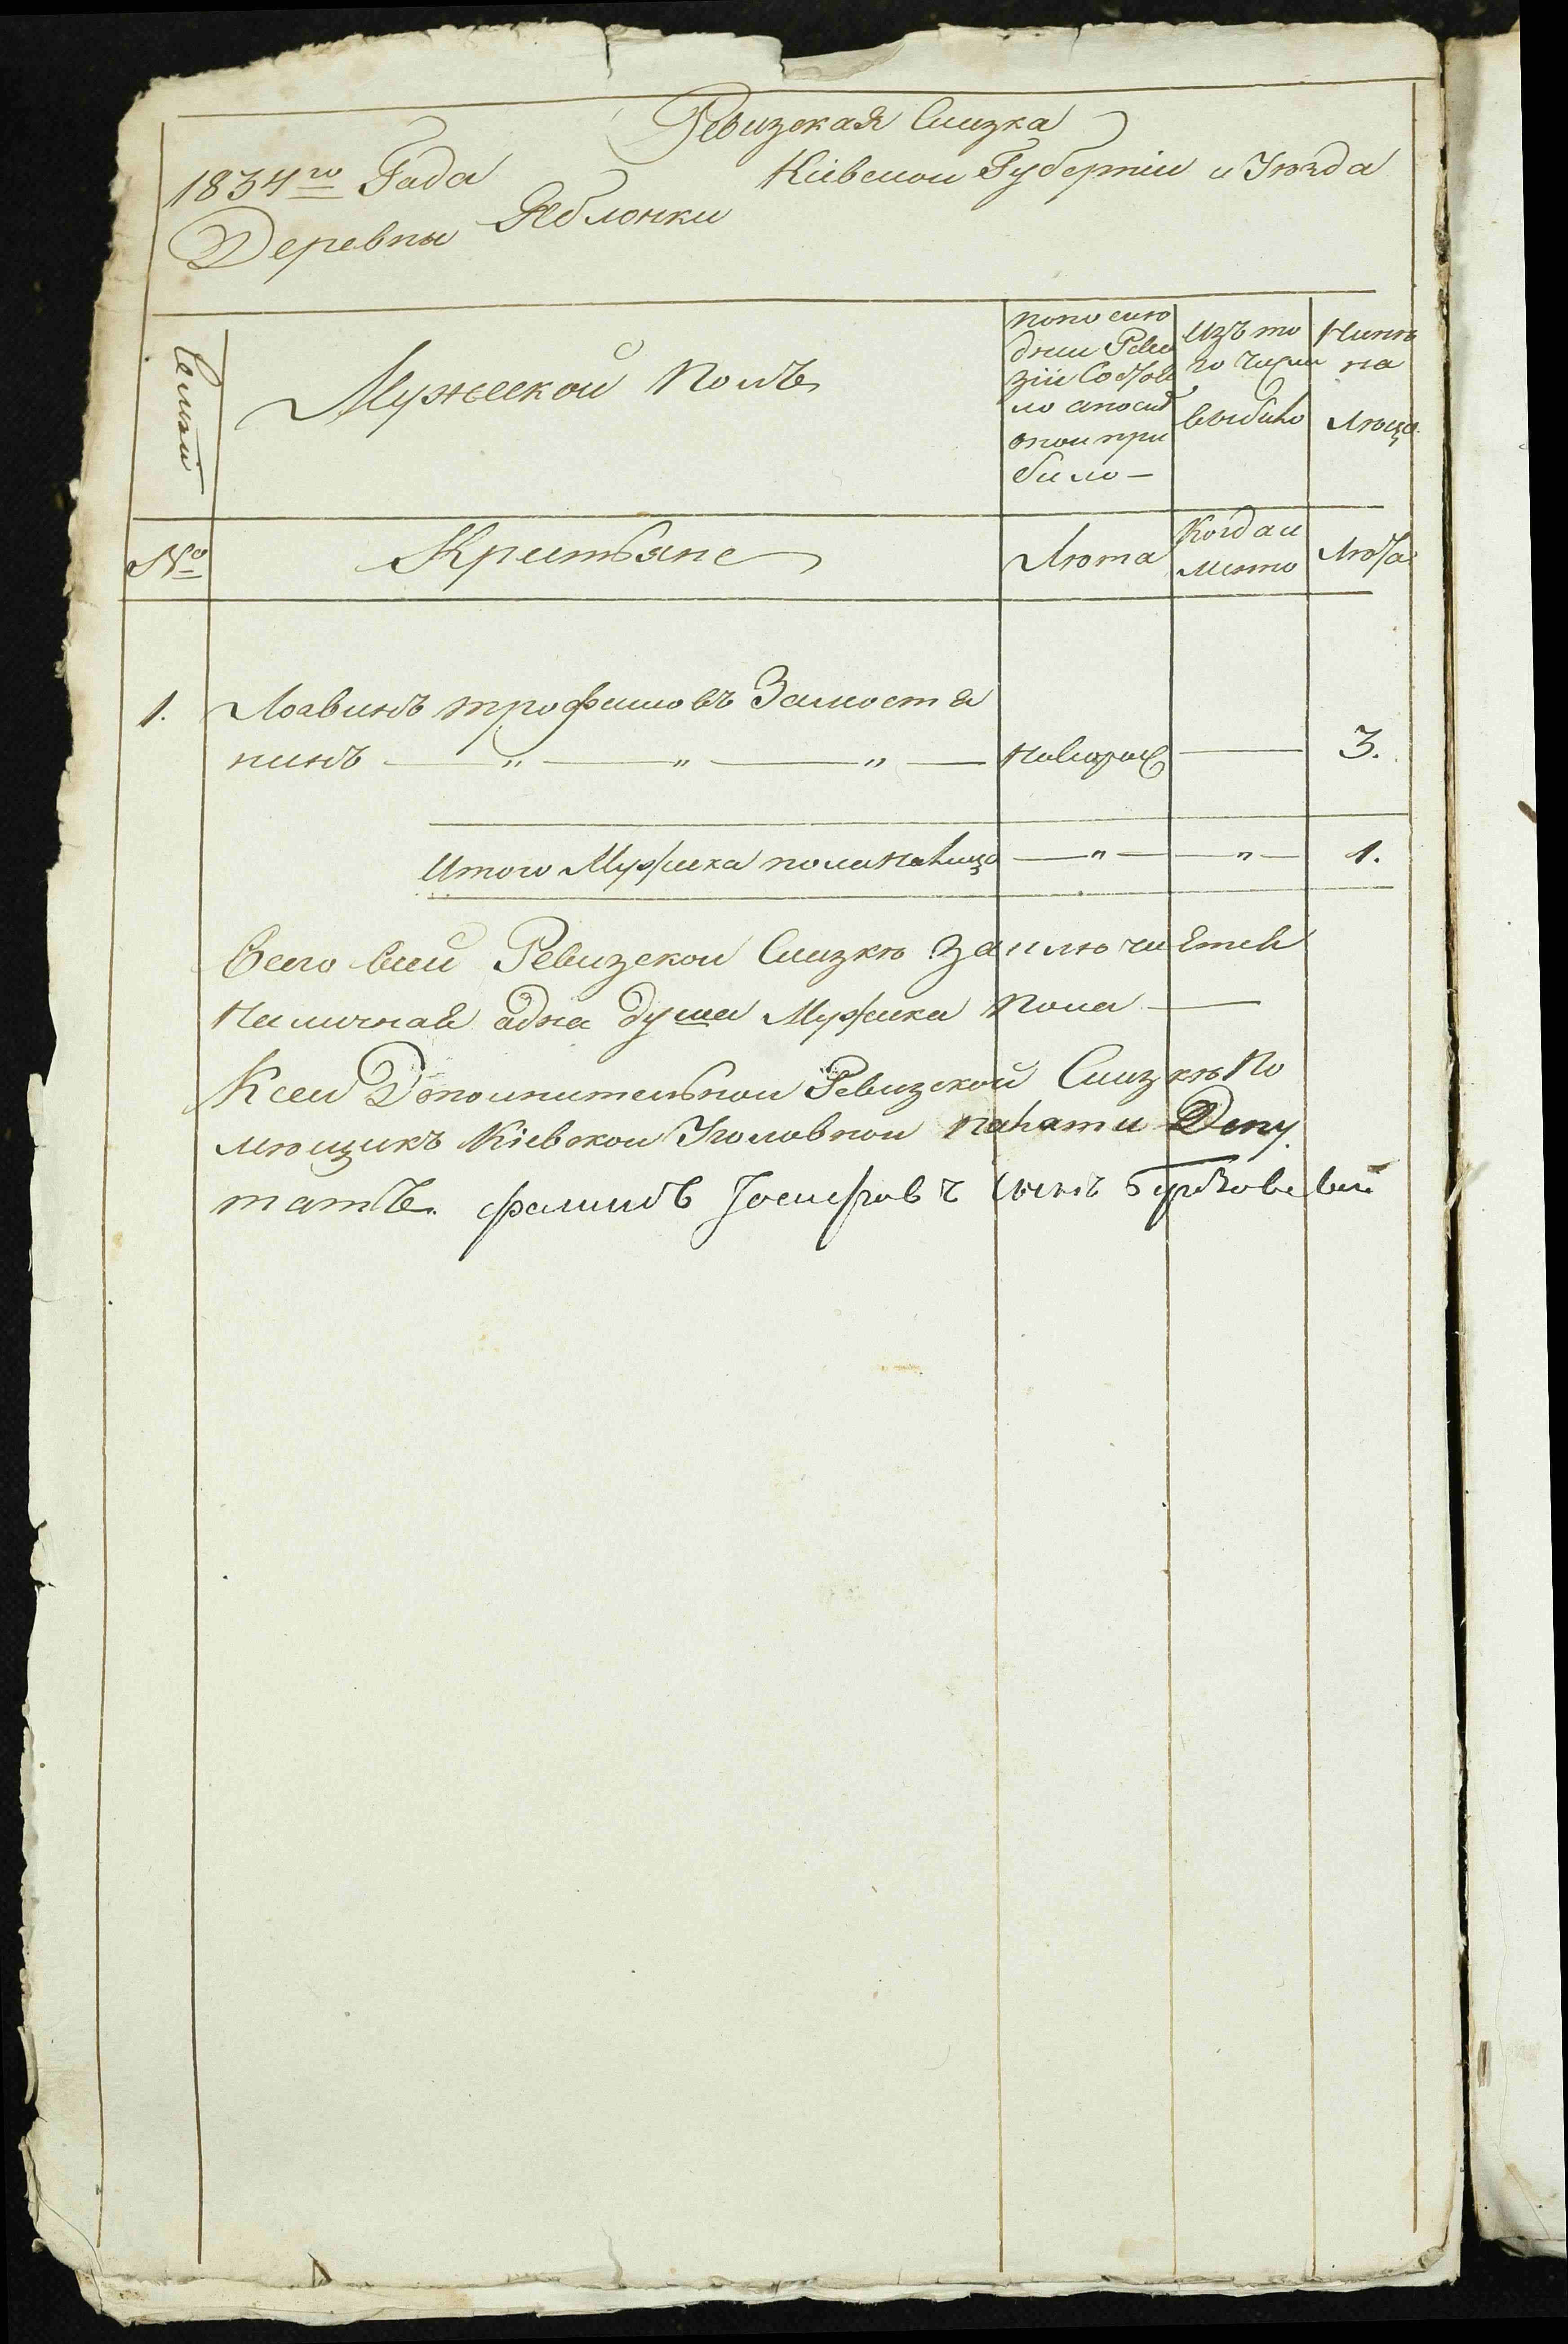 Ревизская Сказка
1834го Года Кіевской Губерніи и Уезда
Деревны Яблонки
Семьи
Мужеской полъ
попосле
дней Реви
зіи Состоя
ло
оной при
было —
Изъ то
го числа
выбыло
Ныне
на
лице
№
Крестьяне
Лета
Когда и
Лета
1. Трофимовъ Замостя
нинъ — " — " — " — новорож — 3.
Итого Мужска пола налицо — " — — " — 1.
Всего всей Ревизской Сказке заключаетъя
наличная адна душа Мужска пола —
Ксей Дополнительной Ревизской Сказке По
мещикъ Кіевской Уголовной Палати Депу
татъ. Іосифовъ Сынъ